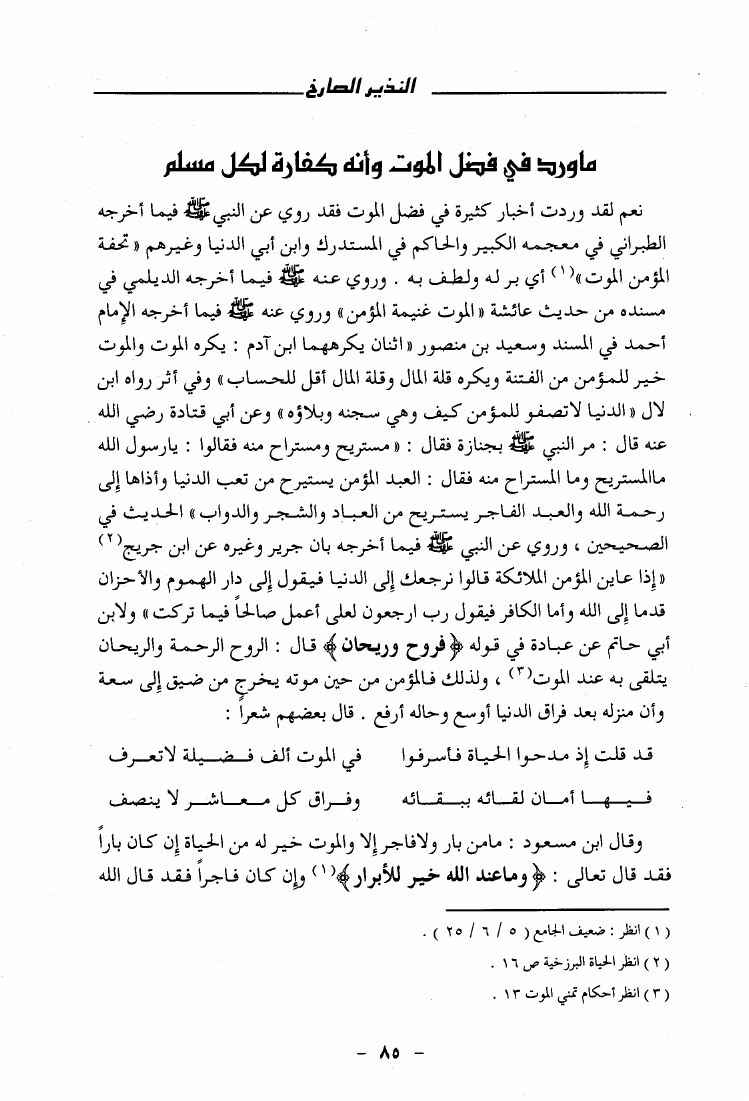 النذير الصارخ
ماورد في فضل الموت وأنه كفارة لكل مسلم
نعم لقد وردت أخبار كثيرة في فضل الموت فقد روي عن النبي ﷺ فيما أخرجه
الطبراني في معجمه الكبير والحاكم في المستدرك وابن أبي الدنيا وغيرهم « تحفة
المؤمن الموت »(١) أي بر له ولطف به . وروي عنه ﷺ فيما أخرجه الديلمي في
مسنده من حديث عائشة « الموت غنيمة المؤمن » وروي عنه ﷺ فيما أخرجه الإمام
أحمد في المسند وسعيد بن منصور « اثنان يكرههما ابن آدم : يكره الموت والموت
خير للمؤمن من الفتنة ويكره قلة المال وقلة المال أقل للحساب » وفي أثر رواه ابن
لال « الدنيا لاتصفو للمؤمن كيف وهي سجنه وبلاؤه » وعن أبي قتادة رضي الله
عنه قال : مر النبي ﷺ بجنازة فقال : « مستريح ومستراح منه فقالوا : يارسول الله
ماالمستريح وما المستراح منه فقال : العبد المؤمن يستيرح من تعب الدنيا وأذاها إلى
رحمة الله والعبد الفاجر يستريح من العباد والشجر والدواب » الحديث في
الصحيحين ، وروي عن النبي ﷺ فيما أخرجه بان جرير وغيره عن ابن جريج(٢)
« إذا عاين المؤمن الملائكة قالوا نرجعك إلى الدنيا فيقول إلى دار الهموم والأحزان
قدما إلى الله وأما الكافر فيقول رب ارجعون لعلى أعمل صالحاً فيما تركت » ولابن
أبي حاتم عن عبادة في قوله ﴿ فروح وريحان ﴾ قال : الروح الرحمة والريحان
يتلقى به عند الموت(٣) ، ولذلك فالمؤمن من حين موته يخرج من ضيق إلى سعة
وأن منزله بعد فراق الدنيا أوسع وحاله أرفع . قال بعضهم شعراً :
قد قلت إذ مدحوا الحياة فأسرفوا في الموت ألف فضيلة لاتعرف
فيها أمان لقائه ببقائه وفراق كل معاشر لا ينصف
وقال ابن مسعود : مامن بار ولافاجر إلا والموت خير له من الحياة إن كان باراً
فقد قال تعالى : ﴿ وماعند الله خير للأبرار ﴾(١) وإن كان فاجراً فقد قال الله
( ١ ) انظر : ضعيف الجامع ( ٥ / ٦ / ٢٥ ) .
( ٢ ) انظر الحياة البرزخية ص ١٦ .
( ٣ ) انظر أحكام تمني الموت ١٣ .
- ٨٥ -